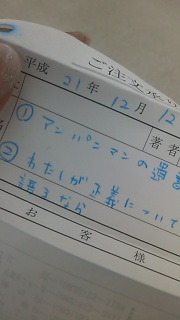 ご注文
平成 21年 12月 12
著者
① アンパンマンの遺書
② わたしが正義について
語るなら
お客様